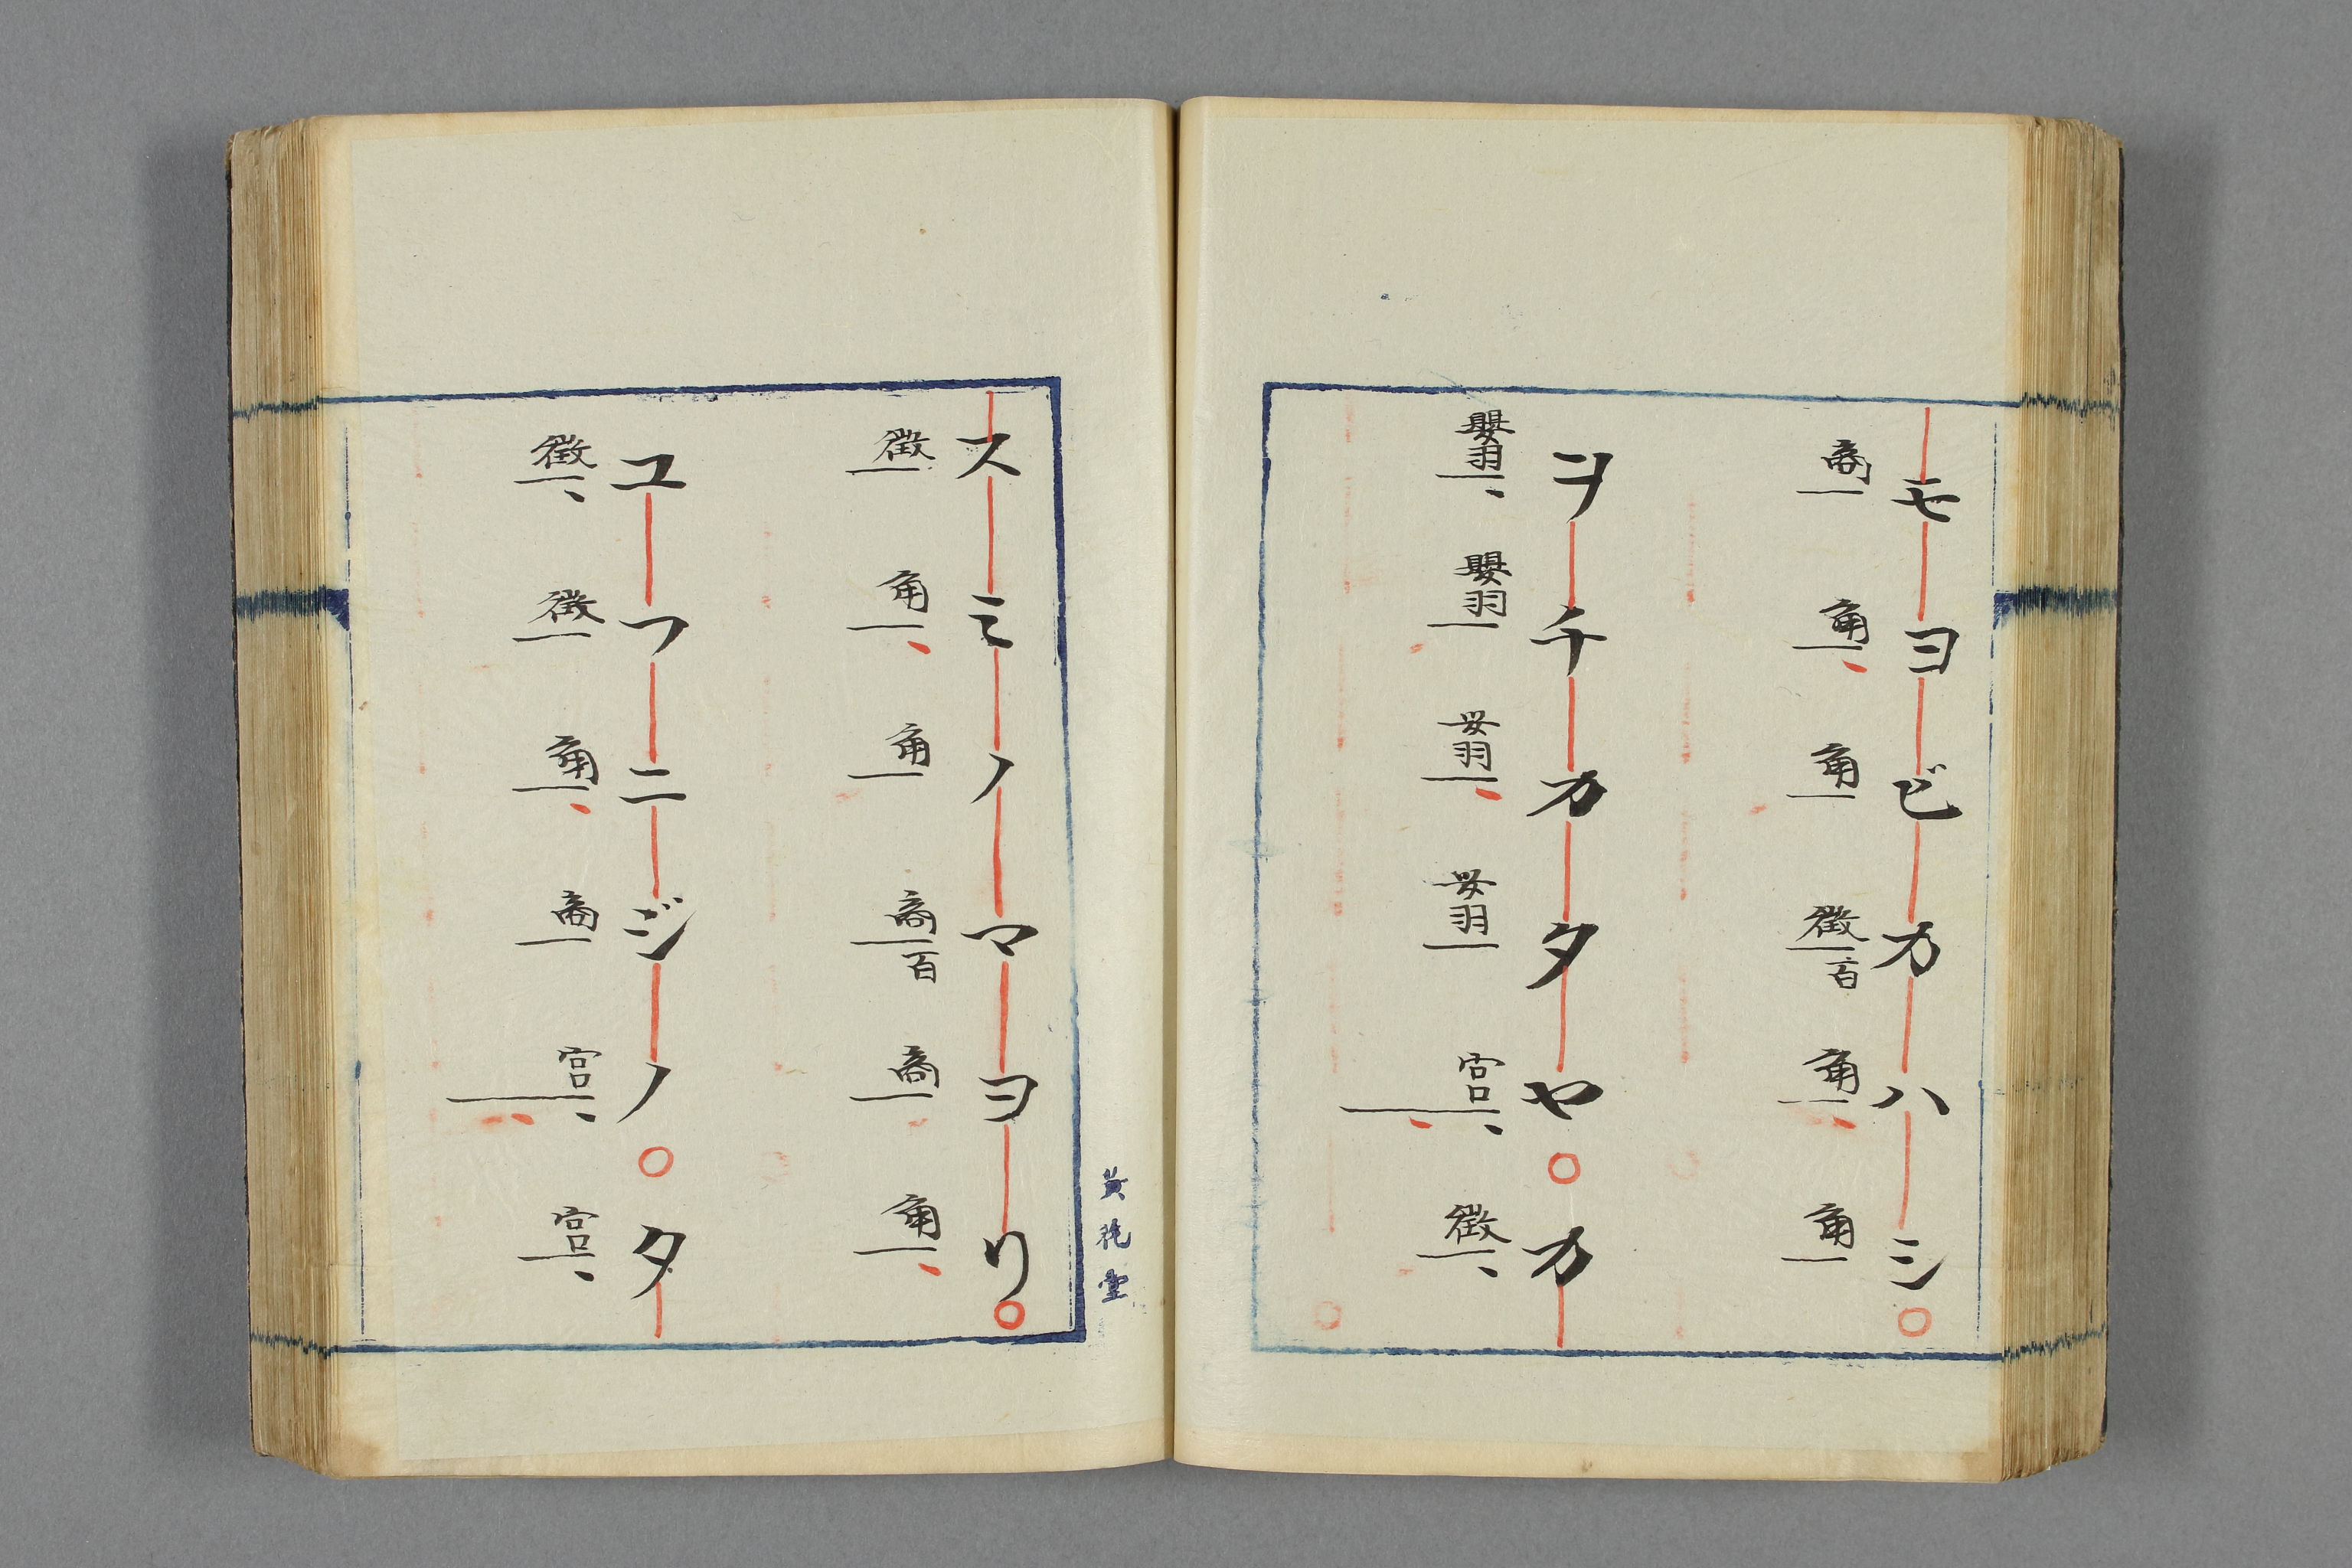 モヨビカハシ○
商角角徴百角角
ヲチカタヤ○カ
嬰羽嬰羽嬰羽嬰羽宮徴
スミノマヨリ○
徴角角商百商角
ユフニジノ○タ
徴徴角商宮宮